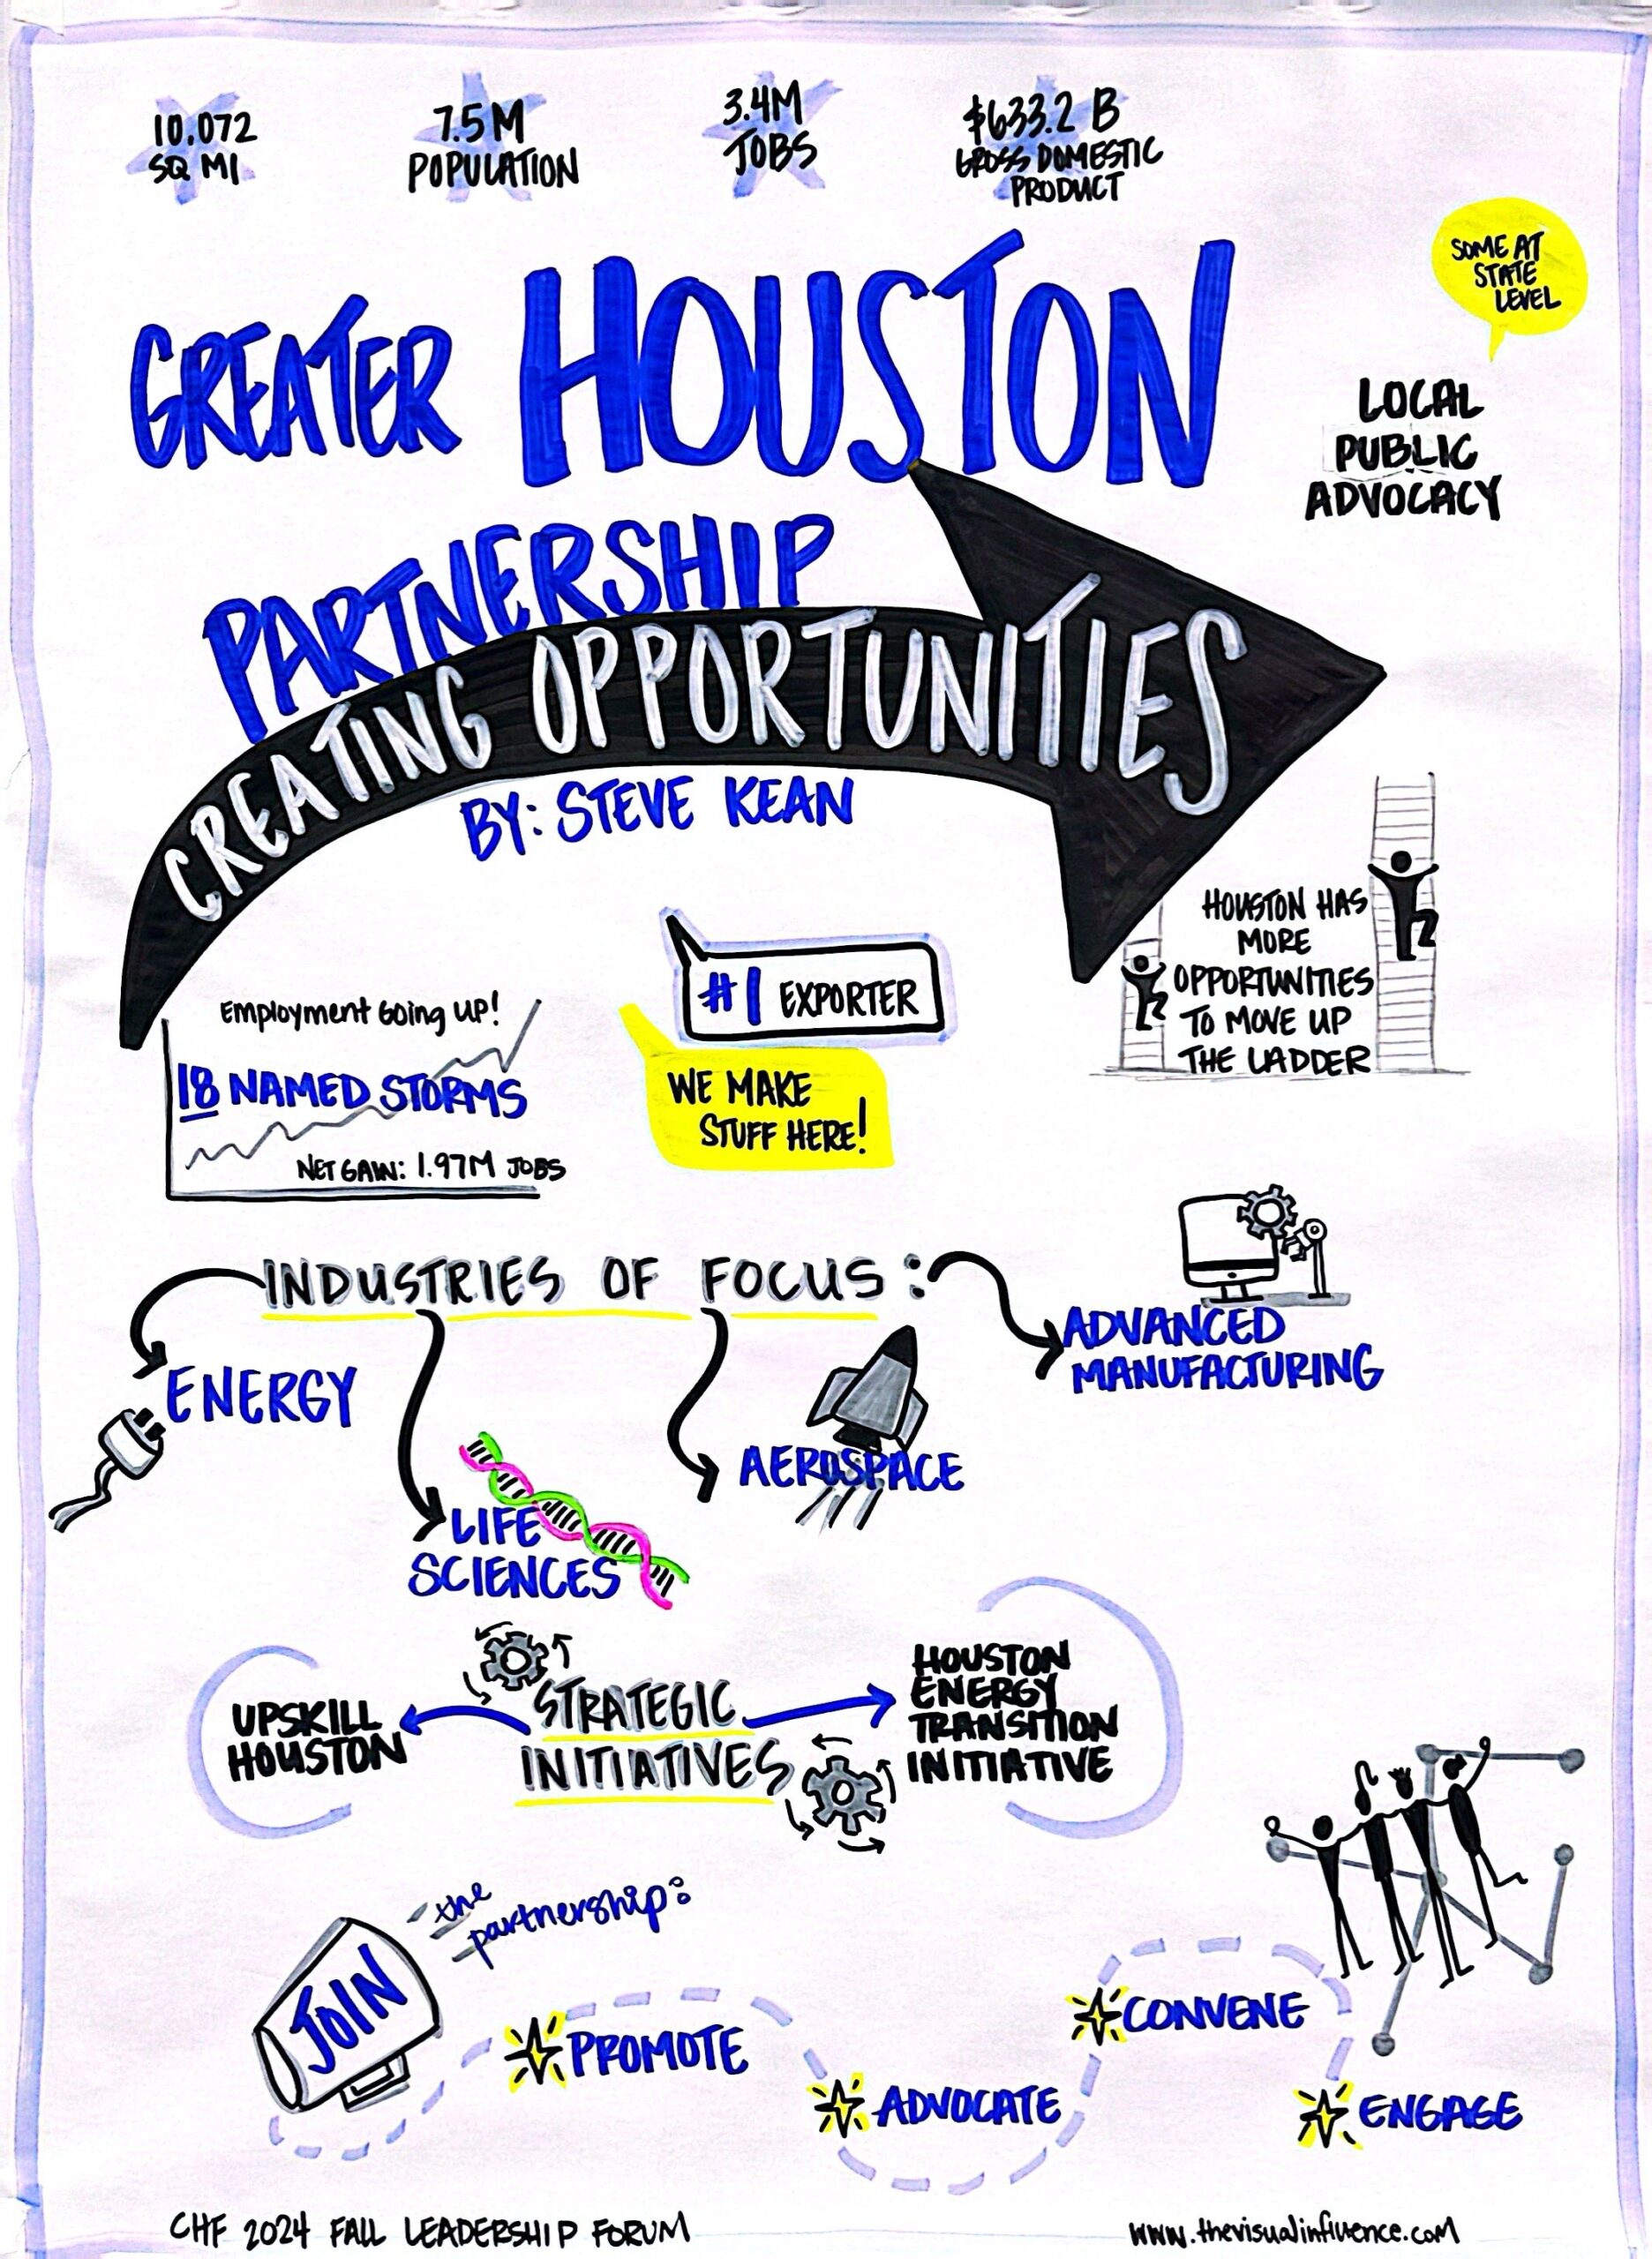 10.072
SQ MI
7.5M
POPULATION
3.4M
JOBS
$633.2 B
GROSS DOMESTIC
PRODUCT
SOME AT
STATE
LEVEL
LOCAL
PUBLIC
ADVOCACY
GREATER HOUSTON
PARTNERSHIP
CREATING OPPORTUNITIES
BY: STEVE KEAN
Employment Going up!
18 NAMED STORMS
NET GAIN: 1.97M JOBS
#1 EXPORTER
WE MAKE
STUFF HERE!
HOUSTON HAS
MORE
OPPORTUNITIES
TO MOVE UP
THE LADDER
INDUSTRIES OF FOCUS:
ENERGY
LIFE
SCIENCES
AEROSPACE
ADVANCED
MANUFACTURING
STRATEGIC
INITIATIVES
UPSKILL
HOUSTON
HOUSTON
ENERGY
TRANSITION
INITIATIVE
JOIN
the
partnership:
PROMOTE
ADVOCATE
CONVENE
ENGAGE
CHF 2024 FALL LEADERSHIP FORUM
www.thevisualinfluence.com